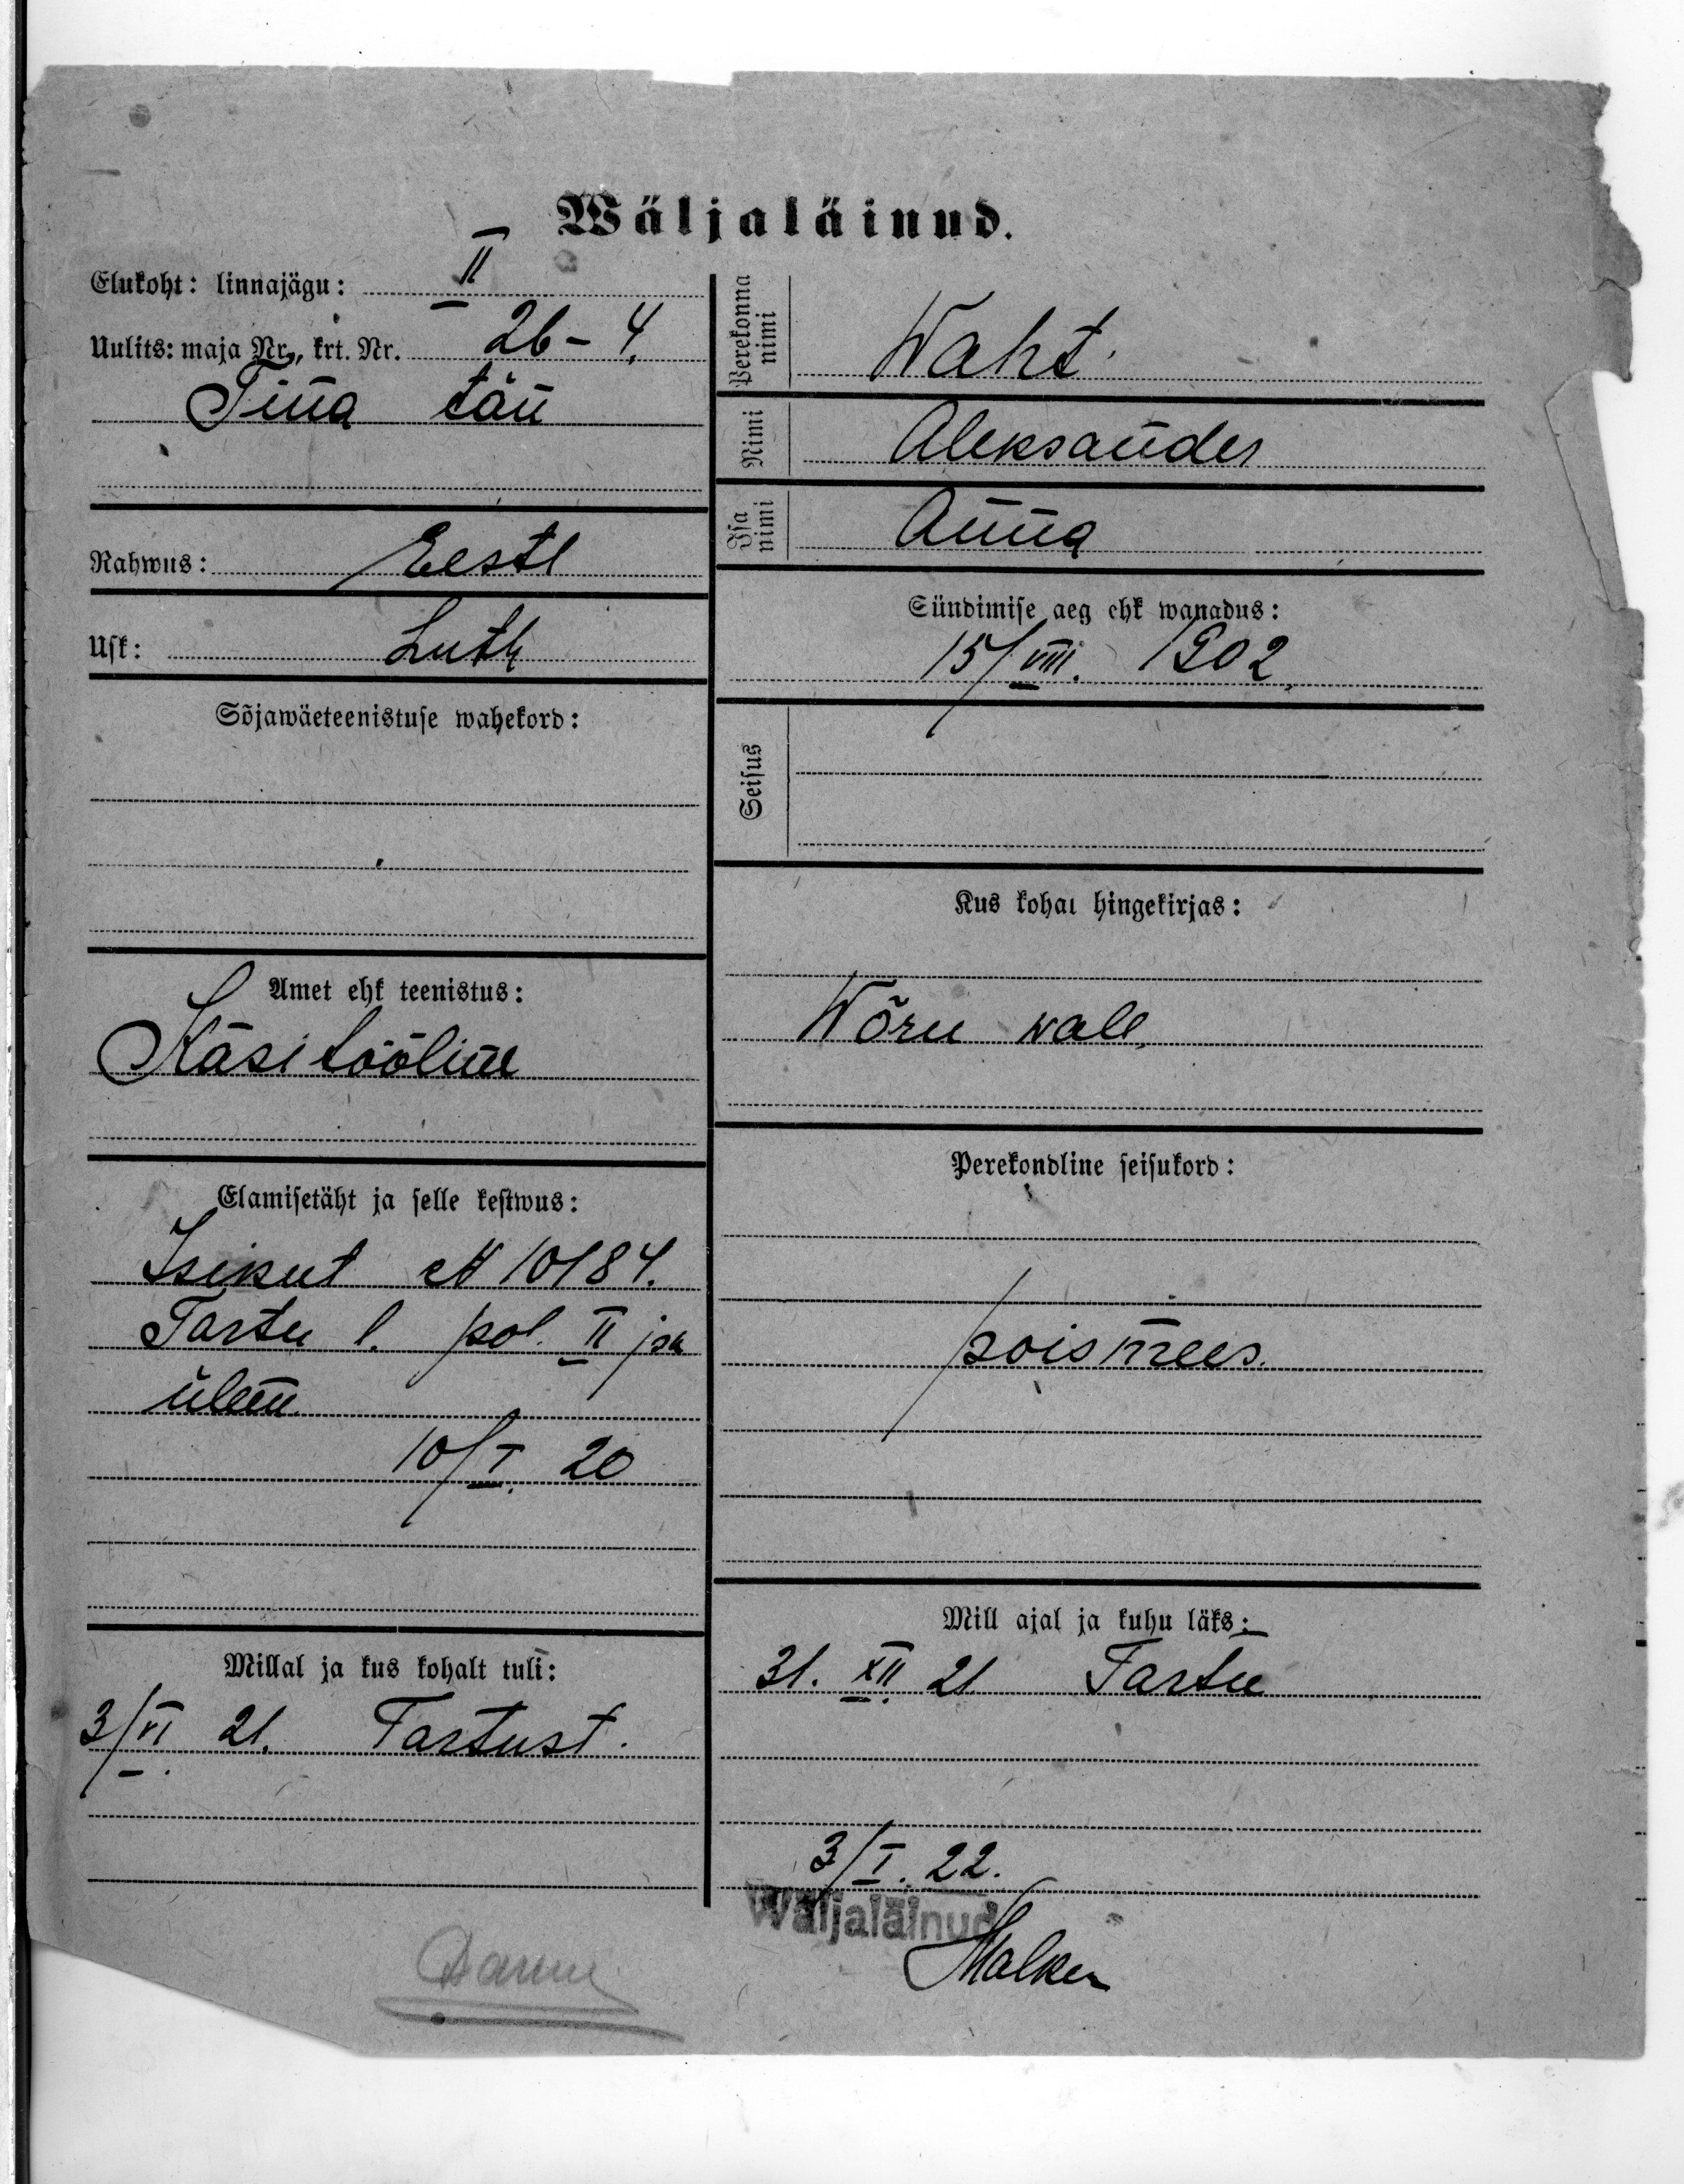 Wäljaläinud.
Elukoht: linnajägu: II
Uulits: maja Nr., krt. Nr. 26 - 4.
Tiina tän
Rahwus: Eestl
Usk: Luth
Sõjawäeteenistuse wahekord:
Amet ehk teenistus:
Käsitööline
Elamisetäht ja selle kestwus:
Isikut № 10184.
Tartu l. pol. II jsk
ülem
10/I. 20
Millal ja kus kohalt tuli:
3/VI 21. Tartust.
Perekonna nimi Waht
Nimi Aleksander
Isa nimi Anna
Sündimise aeg ehk wanadus:
15/VIII. 1902.
Seisus
Kus kohal hingekirjas:
Wõru wall.
Perekondline seisukord:
poismees.
Mill ajal ja kuhu läks:
31. XII. 21 Tartu
3/I. 22.
Wäljaläinud